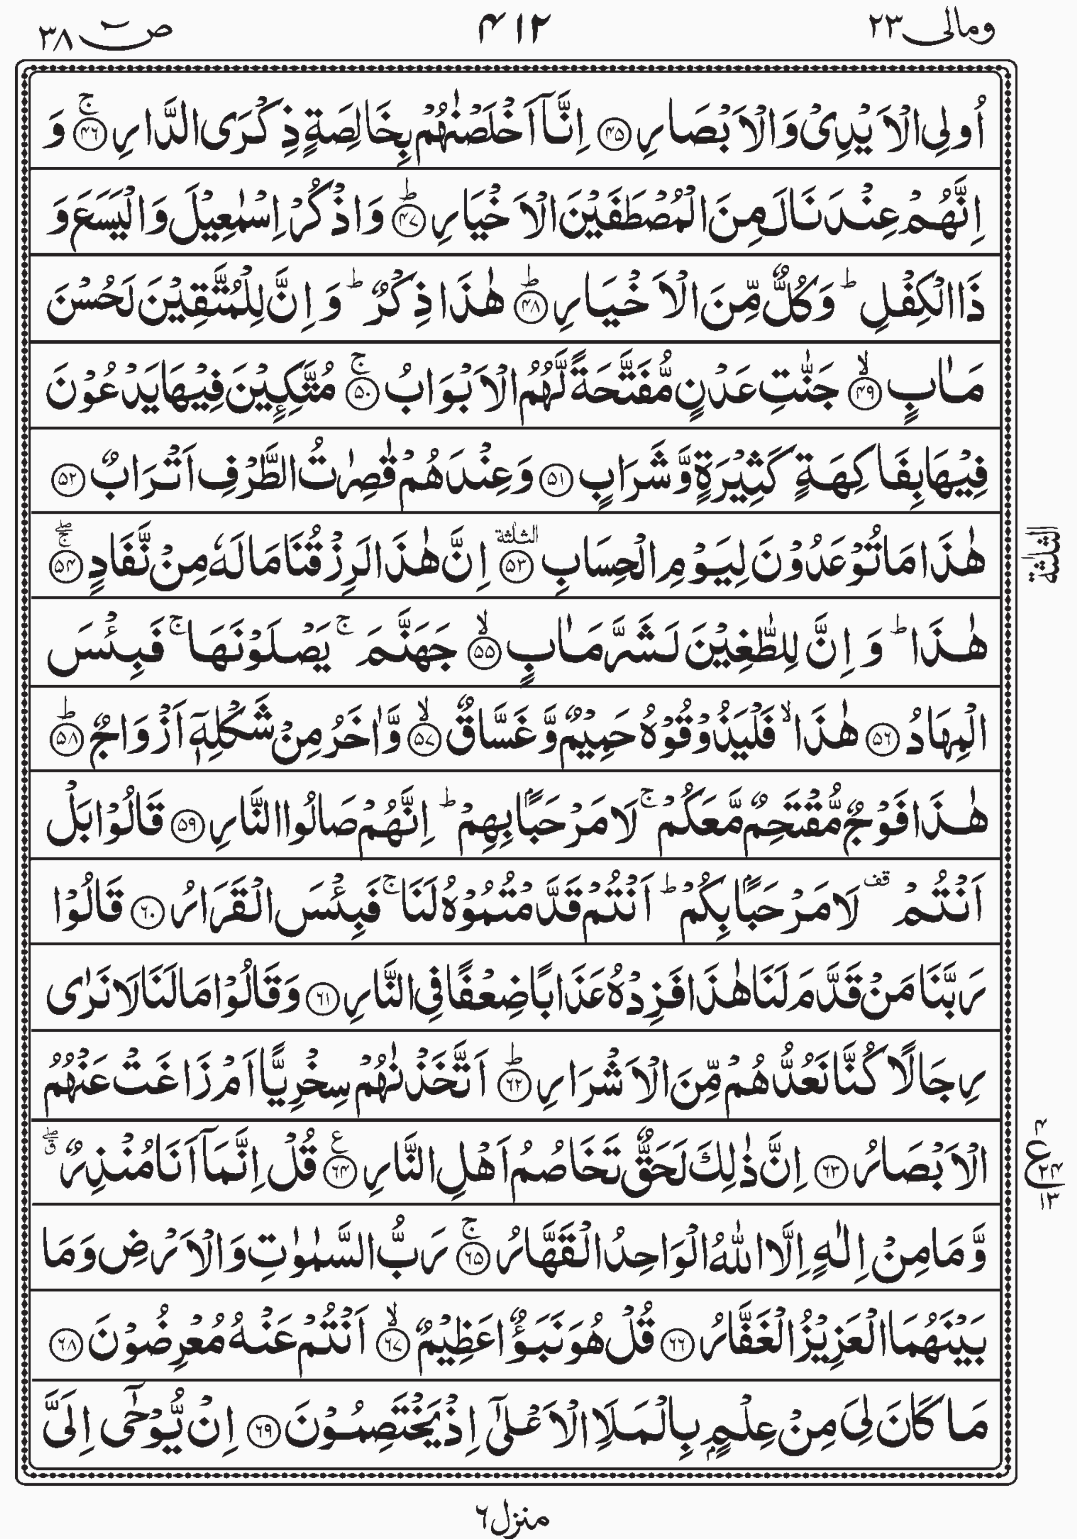 ومالی ٢٣
٤١٢
ص ٣٨
اُولِی الْاَیْدِیْ وَالْاَبْصَارِ ﴿۴۵﴾ اِنَّاۤ اَخْلَصْنٰهُمْ بِخَالِصَةٍ ذِكْرَی الدَّارِ ﴿۴۶﴾ۚ وَ
اِنَّهُمْ عِنْدَنَا لَمِنَ الْمُصْطَفَیْنَ الْاَخْیَارِ ﴿۴۷﴾ؕ وَاذْكُرْ اِسْمٰعِیْلَ وَالْیَسَعَ وَ
ذَا الْكِفْلِ ؕ وَكُلٌّ مِّنَ الْاَخْیَارِ ﴿۴۸﴾ؕ هٰذَا ذِكْرٌ ؕ وَاِنَّ لِلْمُتَّقِیْنَ لَحُسْنَ
مَاٰبٍ ﴿۴۹﴾ۙ جَنّٰتِ عَدْنٍ مُّفَتَّحَةً لَّهُمُ الْاَبْوَابُ ﴿۵۰﴾ۚ مُتَّكِـِٕیْنَ فِیْهَا یَدْعُوْنَ
فِیْهَا بِفَاكِهَةٍ كَثِیْرَةٍ وَّشَرَابٍ ﴿۵۱﴾ وَعِنْدَهُمْ قٰصِرٰتُ الطَّرْفِ اَتْرَابٌ ﴿۵۲﴾
هٰذَا مَا تُوْعَدُوْنَ لِیَوْمِ الْحِسَابِ ﴿۵۳﴾ الثلٰثة اِنَّ هٰذَا لَرِزْقُنَا مَا لَهٗ مِنْ نَّفَادٍ ﴿۵۴﴾ۚۖ
الثلٰثة
هٰذَا ؕ وَاِنَّ لِلطّٰغِیْنَ لَشَرَّ مَاٰبٍ ﴿۵۵﴾ۙ جَهَنَّمَ ۚ یَصْلَوْنَهَا ۚ فَبِئْسَ
الْمِهَادُ ﴿۵۶﴾ هٰذَا ۙ فَلْیَذُوْقُوْهُ حَمِیْمٌ وَّغَسَّاقٌ ﴿۵۷﴾ۙ وَّاٰخَرُ مِنْ شَكْلِهٖۤ اَزْوَاجٌ ﴿۵۸﴾ؕ
هٰذَا فَوْجٌ مُّقْتَحِمٌ مَّعَكُمْ ۚ لَا مَرْحَبًۢا بِهِمْ ؕ اِنَّهُمْ صَالُوا النَّارِ ﴿۵۹﴾ قَالُوْا بَلْ
اَنْتُمْ ۫ قف لَا مَرْحَبًۢا بِكُمْ ؕ اَنْتُمْ قَدَّمْتُمُوْهُ لَنَا ۚ فَبِئْسَ الْقَرَارُ ﴿۶۰﴾ قَالُوْا
رَبَّنَا مَنْ قَدَّمَ لَنَا هٰذَا فَزِدْهُ عَذَابًا ضِعْفًا فِی النَّارِ ﴿۶۱﴾ وَقَالُوْا مَا لَنَا لَا نَرٰی
رِجَالًا كُنَّا نَعُدُّهُمْ مِّنَ الْاَشْرَارِ ﴿۶۲﴾ؕ اَتَّخَذْنٰهُمْ سِخْرِیًّا اَمْ زَاغَتْ عَنْهُمُ
الْاَبْصَارُ ﴿۶۳﴾ اِنَّ ذٰلِكَ لَحَقٌّ تَخَاصُمُ اَهْلِ النَّارِ ﴿۶۴﴾ع قُلْ اِنَّمَاۤ اَنَا مُنْذِرٌ ۖق
٤
ع
٢٤
١٣
وَّمَا مِنْ اِلٰهٍ اِلَّا اللّٰهُ الْوَاحِدُ الْقَهَّارُ ﴿۶۵﴾ۚ رَبُّ السَّمٰوٰتِ وَالْاَرْضِ وَمَا
بَیْنَهُمَا الْعَزِیْزُ الْغَفَّارُ ﴿۶۶﴾ قُلْ هُوَ نَبَؤٌا عَظِیْمٌ ﴿۶۷﴾ۙ اَنْتُمْ عَنْهُ مُعْرِضُوْنَ ﴿۶۸﴾
مَا كَانَ لِیَ مِنْ عِلْمٍۭ بِالْمَلَاِ الْاَعْلٰۤی اِذْ یَخْتَصِمُوْنَ ﴿۶۹﴾ اِنْ یُّوْحٰۤی اِلَیَّ
منزل ٦